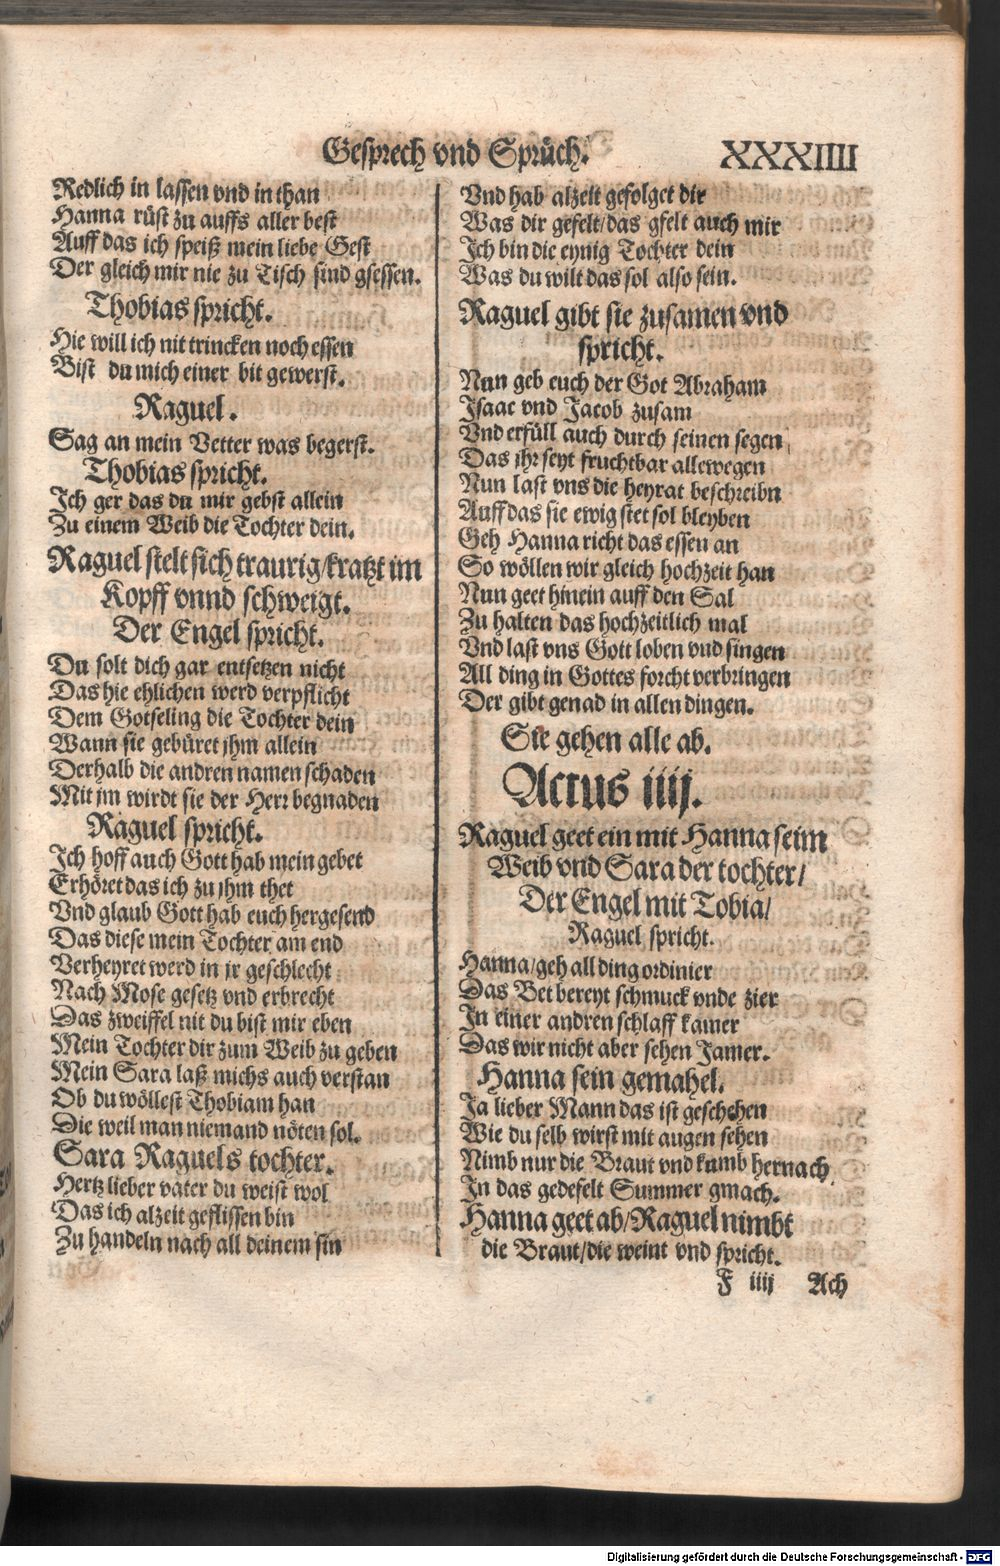 Gesprech vnd Sprüch. XXXIIII
Redlich in lassen vnd in than
Hanna rüst zu auffs aller best
Auff das ich speiß mein liebe Gest
Der gleich mir nie zu Tisch sind gsessen.
Thobias spricht.
Hie will ich nit trincken noch essen
Bist du mich einer bit gewerst.
Raguel.
Sag an mein Vetter was begerst.
Thobias spricht.
Ich ger das du mir gebst allein
Zu einem Weib die Tochter dein.
Raguel stelt sich traurig/kratzt im
Kopff vnnd schweigt.
Der Engel spricht.
Du solt dich gar entsetzen nicht
Das hie ehlichen werd verpflicht
Dem Gotseling die Tochter dein
Wann sie gebüret jhm allein
Derhalb die andren namen schaden
Mit jm wirdt sie der Herr begnaden
Raguel spricht.
Ich hoff auch Gott hab mein gebet
Erhöret das ich zu jhm thet
Vnd glaub Gott hab euch hergesend
Das diese mein Tochter am end
Verheyret werd in jr geschlecht
Nach Mose gesetz vnd erbrecht
Das zweiffel nit du bist mir eben
Mein Tochter dir zum Weib zu geben
Mein Sara laß michs auch verstan
Ob du wöllest Thobiam han
Die weil man niemand nöten sol.
Sara Raguels tochter.
Hertz lieber vater du weist wol
Das ich alzeit geflissen bin
Zu handeln nach all deinem sin
Vnd hab alzeit gefolget dir
Was dir gefelt/das gfelt auch mir
Ich bin die eynig Tochter dein
Was du wilt das sol also sein.
Raguel gibt sie zusamen vnd
spricht.
Nun geb euch der Got Abraham
Isaac vnd Jacob zusam
Vnd erfüll auch durch seinen segen
Das jhr seyt fruchtbar allewegen
Nun last vns die heyrat beschreibn
Auff das sie ewig stet sol bleyben
Geh Hanna richt das essen an
So wöllen wir gleich hochzeit han
Nun geet hinein auff den Sal
Zu halten das hochzeitlich mal
Vnd last vns Gott loben vnd singen
All ding in Gottes forcht verbringen
Der gibt genad in allen dingen.
Sie gehen alle ab.
Actus iiij.
Raguel geet ein mit Hanna seim
Weib vnd Sara der tochter/
Der Engel mit Tobia/
Raguel spricht.
Hanna/geh all ding ordinier
Das Bet bereyt schmuck vnde zier
In einer andren schlaff kamer
Das wir nicht aber sehen Jamer.
Hanna sein gemahel.
Ja lieber Mann das ist geschehen
Wie du selb wirst mit augen sehen
Nimb nur die Braut vnd kumb hernach
In das gedefelt Summer gmach.
Hanna geet ab/Raguel nimbt
die Braut/die weint vnd spricht.
F iiij Ach
Digitalisierung gefördert durch die Deutsche Forschungsgemeinschaft - DFG